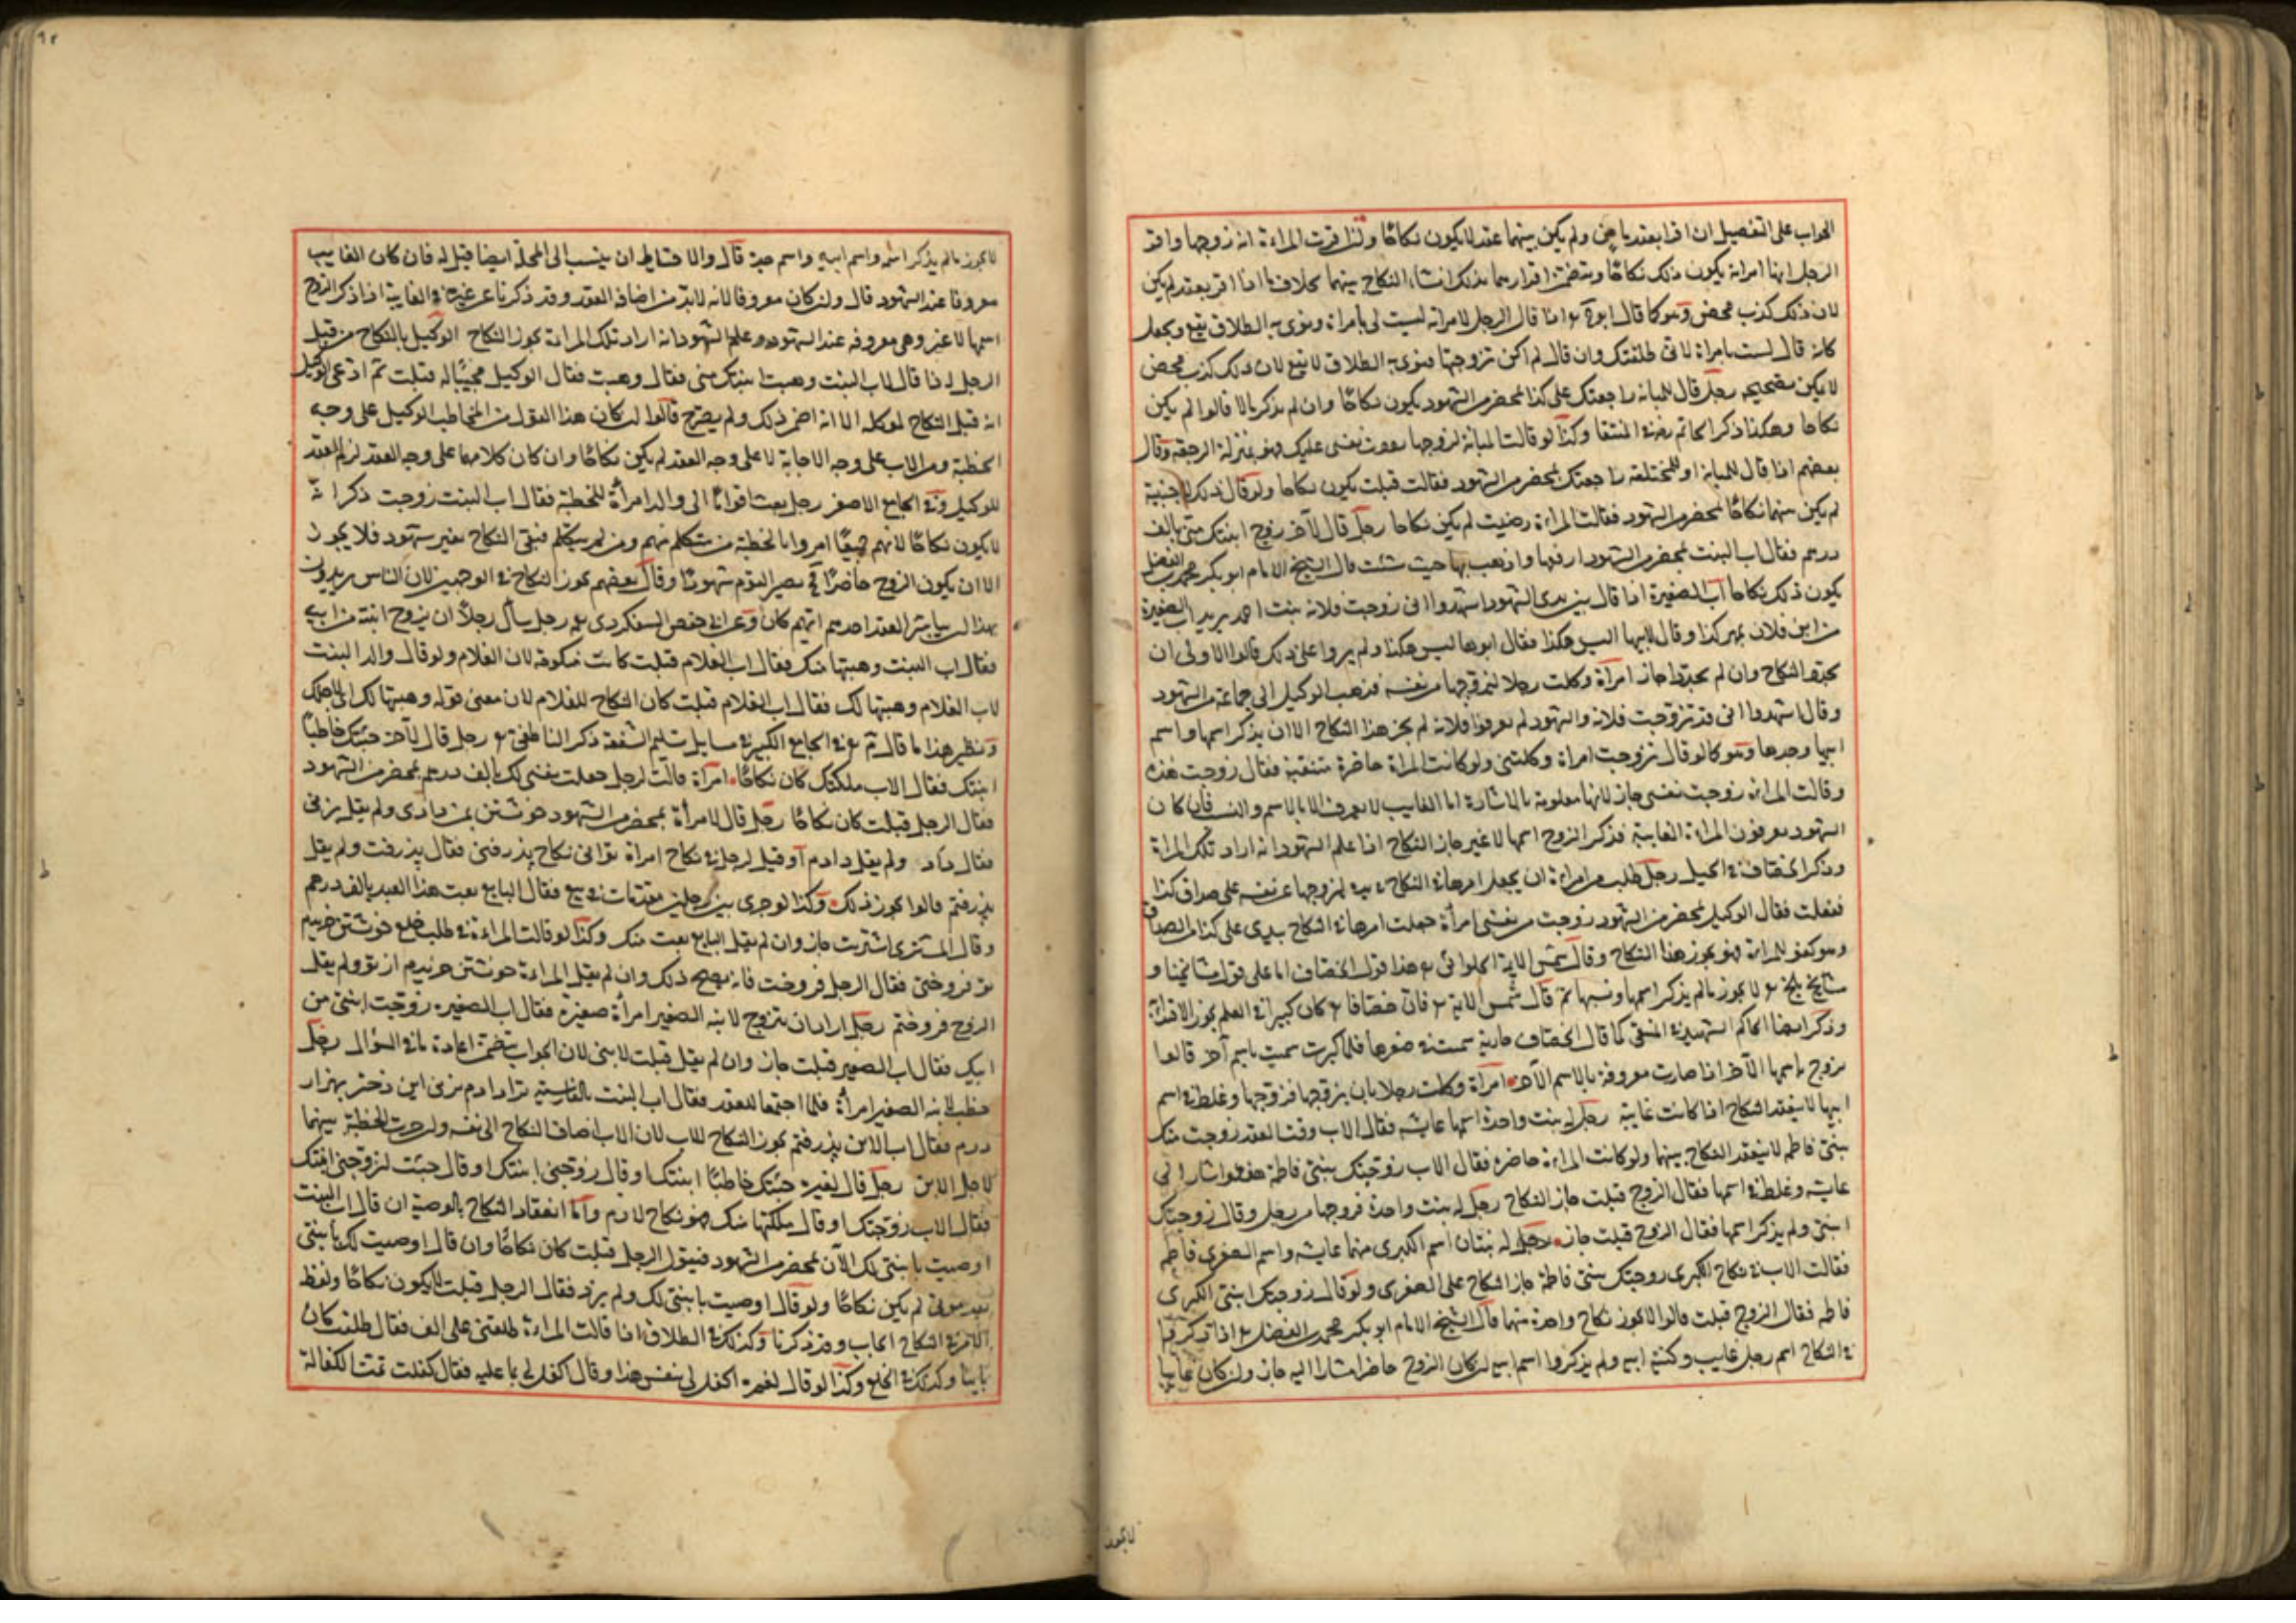 الجواب على التفصيل ان اقرا بعقد ماض ولم يكن بينهما عقد لا يكون نكاحا وان اقرت المراة انه زوجها واقر
الرجل انها امراته يكون ذلك نكاحا ويتضمن اقرارهما بذلك انشاء النكاح بينهما بخلاف ما اذا اقرا بعقد لم يكن
لان ذلك كذب محض وهو كما قال ابو ح اذا قال الرجل لامراته لست لي بامراة ونوى به الطلاق يقع ويجعل
كانه قال لست بامراة لاني طلقتك وان قال لم اكن تزوجتها ونوى به الطلاق لا يقع لان ذلك كذب محض
لا يمكن تصحيحه رجل قال للمبانة راجعتك على كذا بمحضر من الشهود يكون نكاحا وان لم يذكر مالا قالوا لم يكن
نكاحا وهكذا ذكر الحاكم في المنتقا وكذا لو قالت المبانة لزوجها نفسي عليك فهو بمنزلة الرجعة وقال
بعضهم اذا قال للمبانة او للمختلعة راجعتك بمحضر من الشهود فقالت قبلت يكون نكاحا ولو قال ذلك لاجنبية
لم يكن بينهما نكاحا بمحضر من الشهود فقالت المراة رضيت لم يكن نكاحا رجل قال لآخر زوج ابنتك مني بالف
درهم فقال اب البنت بمحضر من الشهود ارفعها واذهب بها حيث شئت قال الشيخ الامام ابو بكر محمد بن الفضل
يكون ذلك نكاحا اب الصغيرة اذا قال بين يدي الشهود اشهدوا اني زوجت فلانة بنت احمد يريد الصغيرة
من ابن فلان بمهر كذا وقال لابيها اليس هكذا فقال ابوها ليس هكذا ولم يزدوا على ذلك قالوا الاولى ان
يجددوا النكاح وان لم يجددوا جاز امراة وكلت رجلا ليزوجها من نفسه فذهب الوكيل الى جماعة من الشهود
وقال اشهدوا اني قد تزوجت فلانة والشهود لم يعرفوا فلانة لم يجز هذا النكاح الا ان يذكر اسمها واسم
ابيها وجدها وهو كما لو قال تزوجت امراة وكلتني ولو كانت المراة حاضرة متنقبة فقال زوجت هذه
وقالت المراة زوجت نفسي جاز لانها معلومة بالاشارة اما الغايب لا يعرف الا بالاسم والنسب فان كان
الشهود يعرفون المراة الغايبة فذكر الزوج اسمها لا غير جاز النكاح اذا علم الشهود انه اراد تلك المراة
وذكر الخصاف في الحيل رجل طلب من امراة ان يجعل امرها في النكاح بيده ليزوجها من نفسه على صداق كذا
ففعلت فقال الوكيل بمحضر من الشهود زوجت من نفسي امراة جعلت امرها في النكاح بيدي على كذا من الصداق
وهو كفو للمراة فهو يجوز هذا النكاح وقال شمس الايمة الحلوائي هذا قول الخصاف اما على قول مشايخنا و
مشايخ بلخ لا يجوز ما لم يذكر اسمها ونسبها ثم قال شمس الايمة فان خصافا كان كبيرا في العلم يجوز الاقتداء
وذكر ايضا الحاكم الشهيد في المنتقى كما قال الخصاف جارية سميت في صغرها فلما كبرت سميت باسم آخر قالوا
تزوج باسمها الآخر اذا صارت معروفة بالاسم الآخر امراة وكلت رجلا بان يزوجها فزوجها وغلط في اسم
ابيها لا ينعقد النكاح اذا كانت غايبة رجل له بنت واحدة اسمها عايشة فقال الاب وقت العقد زوجت منك
بنتي فاطمة لا ينعقد النكاح بينهما ولو كانت المراة حاضرة فقال الاب زوجتك بنتي فاطمة هذه واشار الى
عايشة وغلط في اسمها فقال الزوج قبلت جاز النكاح رجل له بنت واحدة فزوجها من رجل وقال زوجتك
ابنتي ولم يذكر اسمها فقال الزوج قبلت جاز رجل له بنتان اسم الكبرى منهما عايشة واسم الصغرى فاطمة
فقالت الاب في نكاح الكبرى زوجتك بنتي فاطمة جاز النكاح على الصغرى ولو قال زوجتك ابنتي الكبرى
فاطمة فقال الزوج قبلت قالوا لا يجوز نكاح واحدة منهما قال الشيخ الامام ابو بكر محمد بن الفضل اذا ذكروا
في النكاح اسم رجل غايب وكنية ابيه ولم يذكروا اسم ابيه ان كان الزوج حاضرا مشارا اليه جاز وان كان غايبا
لا يجوز
لا يجوز ما لم يذكر اسمه واسم ابيه واسم جده قال والاحتياط ان ينسب الى المحلة ايضا قيل له فان كان الغايب
معروفا عند الشهود قال وان كان معروفا لانه لابد من اضافة العقد وقد ذكرنا عن غيره في الغايبة اذا ذكر الزوج
اسمها لا غير وهي معروفة عند الشهود وعلم الشهود انه اراد تلك المراة يجوز النكاح الوكيل بالنكاح من قبل
الرجل اذا قال لاب البنت وهبت ابنتك مني فقال وهبت فقال الوكيل مجيبا له قبلت ثم ادعى الوكيل
انه قبل النكاح لموكله الا انه اضمر ذلك ولم يصرح قالوا ان كان هذا القول من المخاطب الوكيل على وجه
الخطبة ومن الاب على وجه الاجابة لا على وجه العقد لم يكن نكاحا وان كان كلامهما على وجه العقد لزم العقد
للوكيل وفي الجامع الاصغر رجل بعث اقواما الى والد امراة للخطبة فقال اب البنت زوجت ذكر انه
لا يكون نكاحا لانهم جميعا امروا بالخطبة من يتكلم منهم ومن لم يتكلم فبقي النكاح بغير شهود فلا يجوز
الا ان يكون الزوج حاضرا في يصير القوم شهودا وقال بعضهم يجوز النكاح في الوجهين لان الناس يريدون
بهذا ان يباشر العقد احدهم ايهم كان وعن ابي حفص السفكردي رجل سأل رجلا ان يزوج ابنته من ابنه
فقال اب البنت وهبتها منك فقال اب الغلام قبلت كانت منكوحة لاب الغلام ولو قال والد البنت
لاب الغلام وهبتها لك فقال اب الغلام قبلت كان النكاح للغلام لان معنى قوله وهبتها لك اي لاجلك
ونظير هذا ما قال في الجامع الكبير في مسايل تسليم الشفعة ذكر الناطفي رجل قال لآخر جئتك خاطبا
ابنتك فقال الاب ملكتك كان نكاحا امراة قالت لرجل جعلت نفسي لك بالف درهم بمحضر من الشهود
فقال الرجل قبلت كان نكاحا رجل قال لامراة بمحضر من الشهود خوشتن بمن دادي ولم يقل بزني
فقال داد ولم يقل دادم او قيل لرجل في نكاح امراة تو اين نكاح پذرفتي فقال پذرفت ولم يقل
پذرفتم قالوا يجوز ذلك وكذا لو جرى بين رجلين مقدمات في بيع فقال البايع بعت هذا العبد بالف درهم
وقال المشتري اشتريت جاز وان لم يقل البايع بعت منك وكذا لو قالت المراة في طلب خلع خوشتن خريدم
تو فروختي فقال الرجل فروخت فانه يصح ذلك وان لم يقل المراة خوشتن خريدم از تو ولم يقل
الزوج فروختم رجل اراد ان يتزوج لابنه الصغير امراة صغيرة فقال اب الصغيرة زوجت ابنتي من
ابنك فقال اب الصغير قبلت جاز وان لم يقل قبلت لابني لان الجواب يتضمن اعادة ما في السؤال رجل
خطب لابنه الصغير امراة فلما اجتمعا للعقد فقال اب البنت بالفارسية ترا دادم بزني اين دختر بهزار
درم فقال اب الابن پذرفتم يجوز النكاح للاب لان الاب اضاف النكاح الى نفسه وان جرت الخطبة بينهما
لاجل الابن رجل قال لغيره جئتك خاطبا ابنتك او قال زوجني ابنتك او قال جئت لتزوجني ابنتك
فقال الاب زوجتك او قال ملكتها منك فهو نكاح لازم واما انعقاد النكاح بالوصية ان قال اب البنت
اوصيت بابنتي لك الآن بمحضر من الشهود فيقول الرجل قبلت كان نكاحا وان قال اوصيت لك بابنتي
بعد موتي لم يكن نكاحا ولو قال اوصيت بابنتي لك ولم يزد فقال الرجل قبلت لا يكون نكاحا ولفظ
الامر في النكاح ايجاب وقد ذكرنا وكذلك في الطلاق اذا قالت المراة طلقني على الف فقال طلقت كان
باينا وكذلك في الخلع وكذا لو قال لغيره اكفل لي بنفس هذا وقال اكفل لي بما عليه فقال كفلت تمت الكفالة